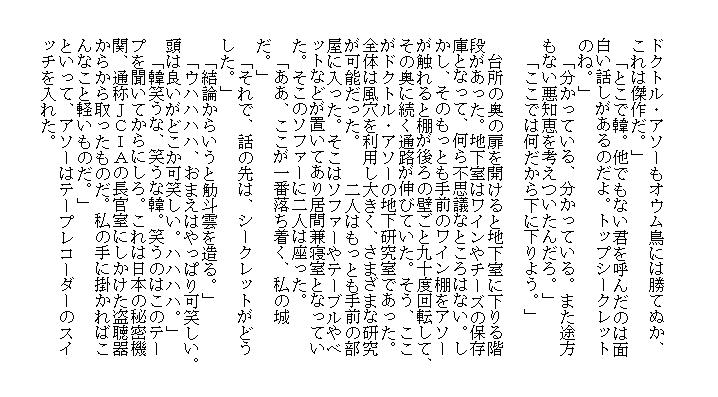 ドクトル・アソーもオウム鳥には勝てぬか、
これは傑作だ。」
「とこで韓。他でもない君を呼んだのは面
白い話しがあるのだよ。トップシークレット
のね。」
「分かっている、分かっている。また途方
もない悪知恵を考えついたんだろ。」
「ここでは何だから下に下りよう。」
台所の奥の扉を開けると地下室に下りる階
段があった。地下室はワインやチーズの保存
庫となって、何ら不思議なところはない。し
かし、そのもっとも手前のワイン棚をアソー
が触れると棚が後ろの壁ごと九十度回転して、
その奥に続く通路が伸びていた。そう、ここ
がドクトル・アソーの地下研究室であった。
全体は風穴を利用し大きく、さまざまな研究
が可能だった。　二人はもっとも手前の部
屋に入った。そこはソファーやテーブルやベ
ットなどが置いてあり居間兼寝室となってい
た。そこのソファーに二人は座った。
「ああ、ここが一番落ち着く、私の城
だ。」
「それで、話の先は、シークレットがどう
した。」
「結論からいうと觔斗雲を造る。」
「ウハハハハ、おまえはやっぱり可笑しい。
頭は良いがどこか可笑しい。ハハハハ。」
「韓笑うな、笑うな韓。笑うのはこのテー
プを聞いてからにしろ。これは日本の秘密機
関、通称ＪＣＩＡの長官室にしかけた盗聴器
からから取ったものだ。私の手に掛かればこ
んなこと軽いものだ。」
といって、アソーはテープレコーダーのスイ
ッチを入れた。